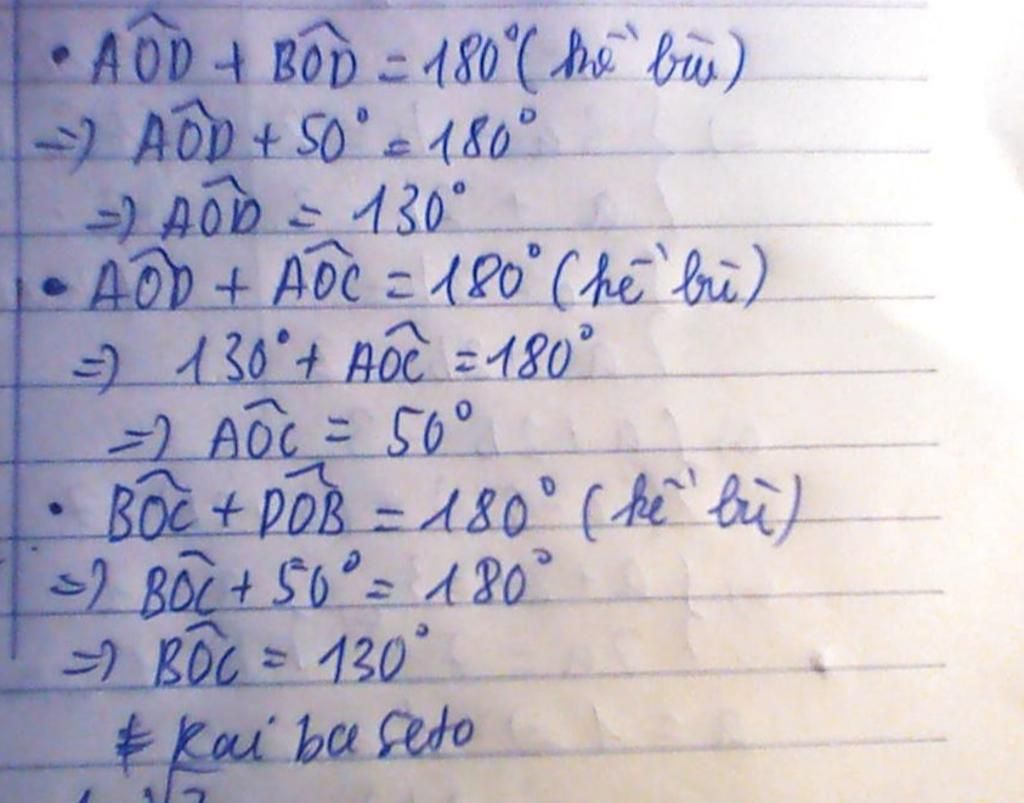 • AÔD + BÔD = 180° (kề bù)
=> AÔD + 50° = 180°
=> AÔD = 130°
• AÔD + AÔC = 180° (kề bù)
=> 130° + AÔC = 180°
=> AÔC = 50°
• BÔC + DÔB = 180° (kề bù)
=> BÔC + 50° = 180°
=> BÔC = 130°
# Kai ba Seto